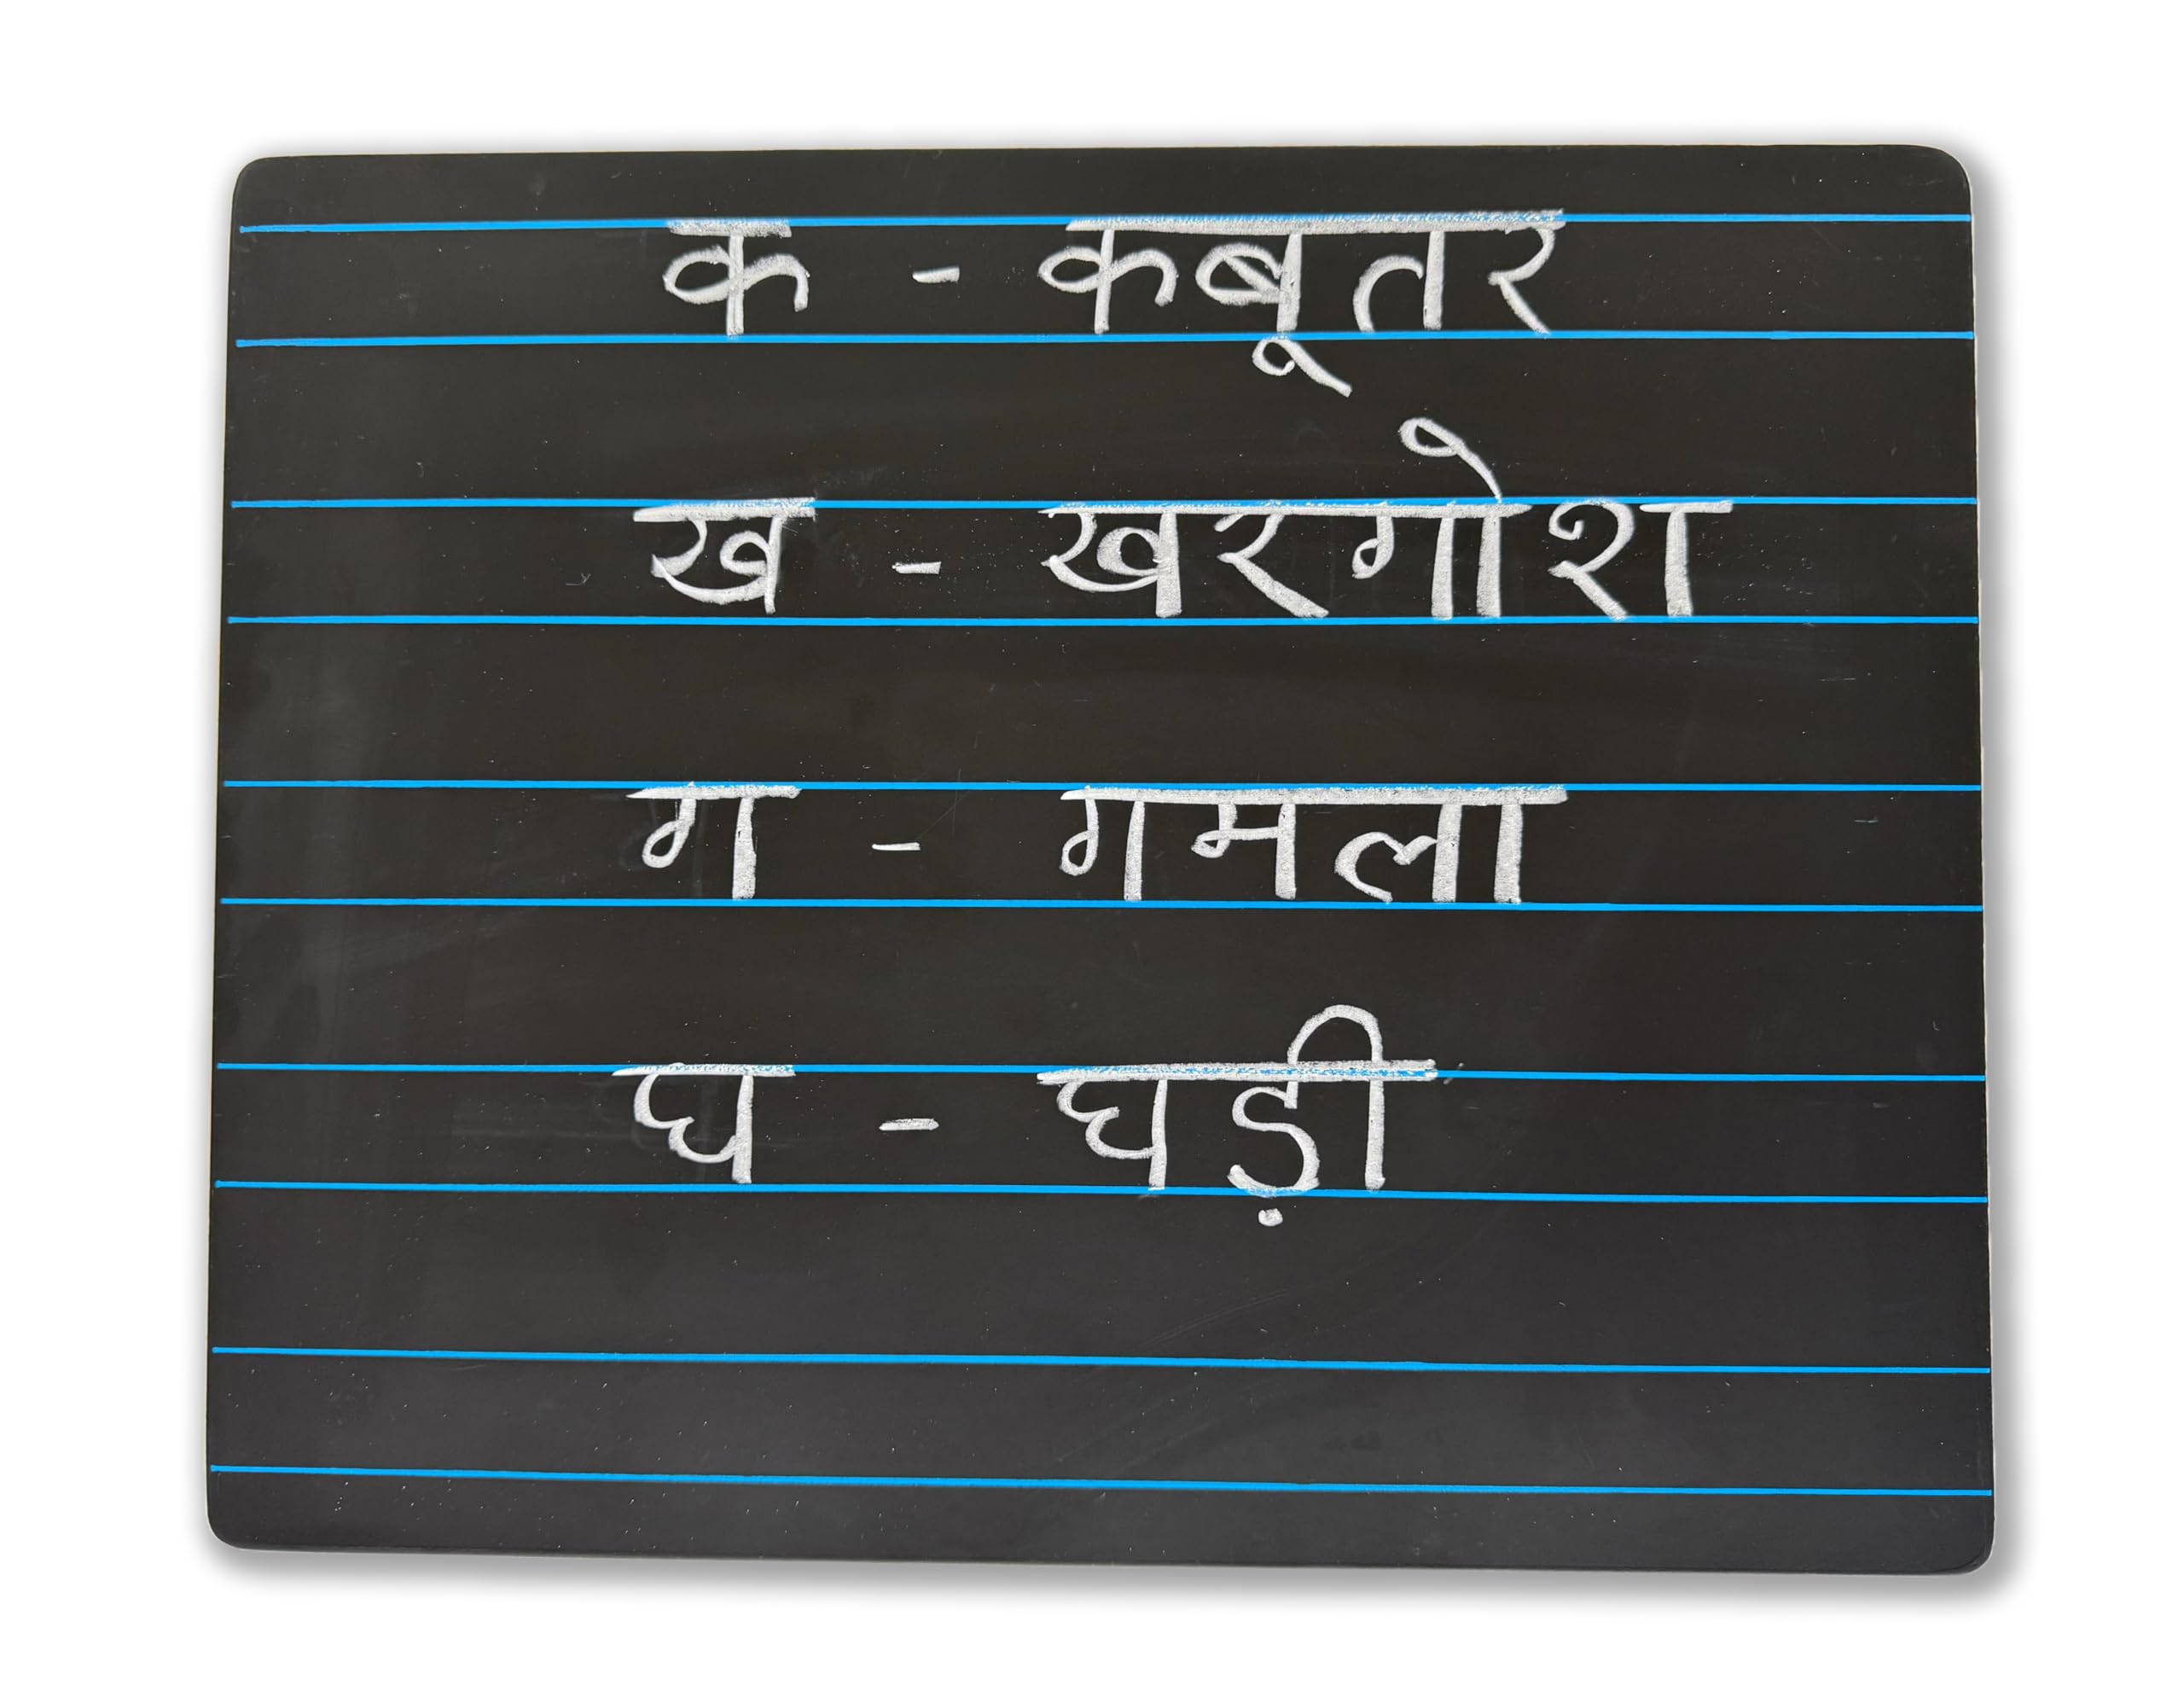 क - कबूतर
ख - खरगोश
ग - गमला
घ - घड़ी